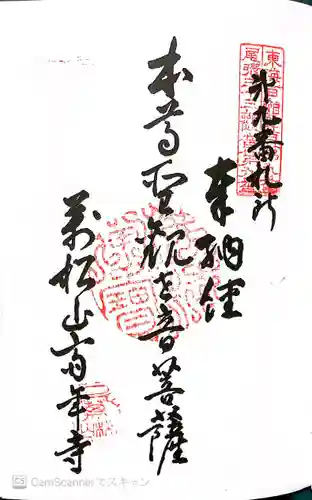 第九番札所
奉納経
本尊聖観世音菩薩
萬松山高年寺
CS CamScannerでスキャン